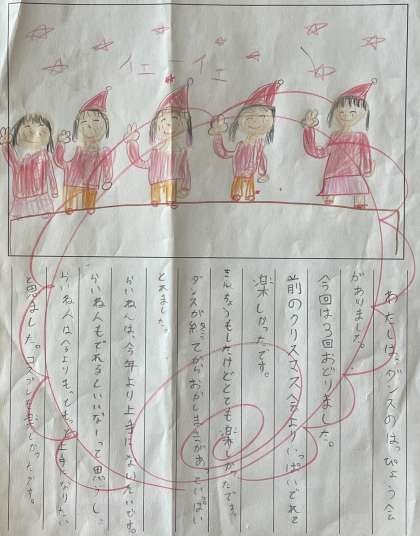 イエーイエ
わたしは、ダンスのはっぴょう会
がありました。
今回は3回おどりました。
前のクリスマス会よりいっぱいでれて
楽しかったです。
きんちょうもしたけどとても楽しかったです。
ダンスが終ってからおかしまきがあっていっぱい
とれました。
らいねんは、今年より上手になりたいです。
らい年人もでれるといいなーって思うし、
らいね人は今よりもっともっと上手になりたい
と思ました。コスプレも楽しかったです。